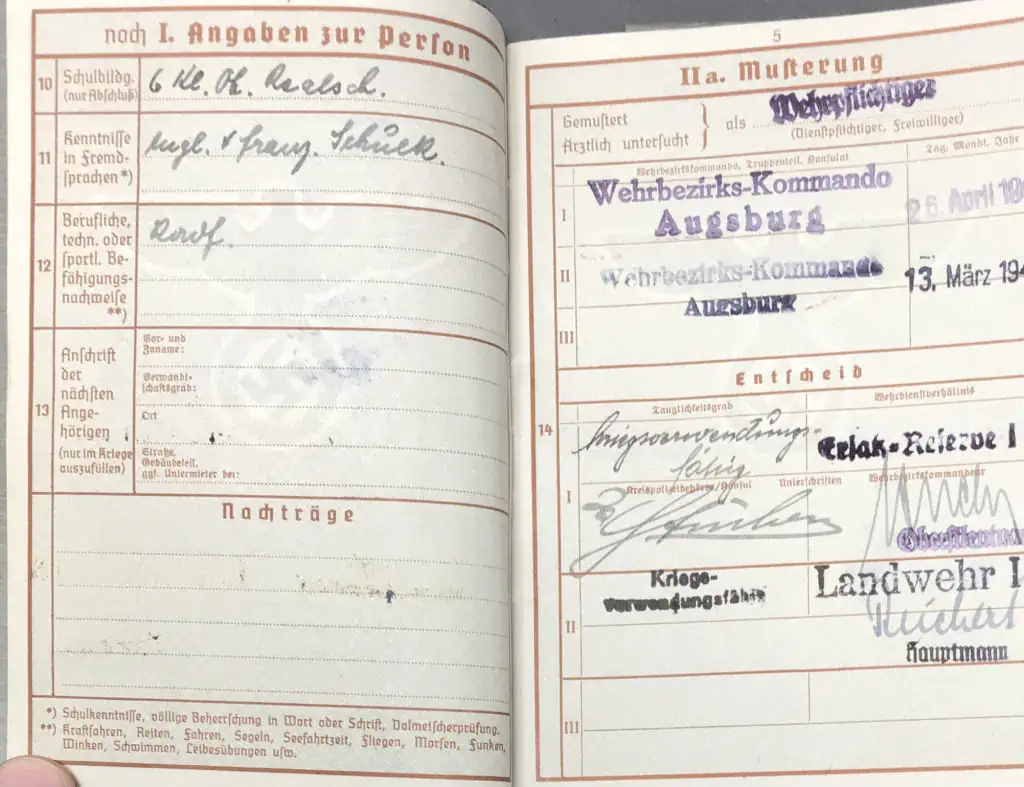 noch I. Angaben zur Person
10
Schulbildg.
(nur Abschluß)
6 Kl. Realsch.
11
Kenntnisse
in Fremd-
sprachen*)
Engl. + franz. Schulk.
12
Berufliche,
techn. oder
sportl. Be-
fähigungs-
nachweise
**)
Radf.
13
Anschrift
der
nächsten
Ange-
hörigen
(nur im Kriege
auszufüllen)
Vor- und
Zuname:
Verwandt-
schaftsgrad:
Ort
Straße,
Gebäudeteil,
ggf. Untermieter bei:
Nachträge
*) Schulkenntnisse, völlige Beherrschung in Wort oder Schrift, Dolmetscherprüfung.
**) Kraftfahren, Reiten, Fahren, Segeln, Seefahrtzeit, Fliegen, Morsen, Funken,
Winken, Schwimmen, Leibesübungen usw.
5
II a. Musterung
Gemustert
Ärztlich untersucht
} als
Wehrpflichtiger
(Dienstpflichtiger, Freiwilliger)
Wehrbezirkskommando, Truppenteil, Konsulat
Tag, Monat, Jahr
I
Wehrbezirks-Kommando
Augsburg
26. April
II
Wehrbezirks-Kommando
Augsburg
13. März 194
III
Entscheid
14
Tauglichkeitsgrad
Wehrdienstverhältnis
kriegsverwendungs-
fähig
Ersatz-Reserve I
I
Kreispolizeibehörde/Konsul
Unterschriften
Wehrbezirkskommandeur
II
Kriegs-
verwendungsfähig
Landwehr I
Reichert
Hauptmann
III